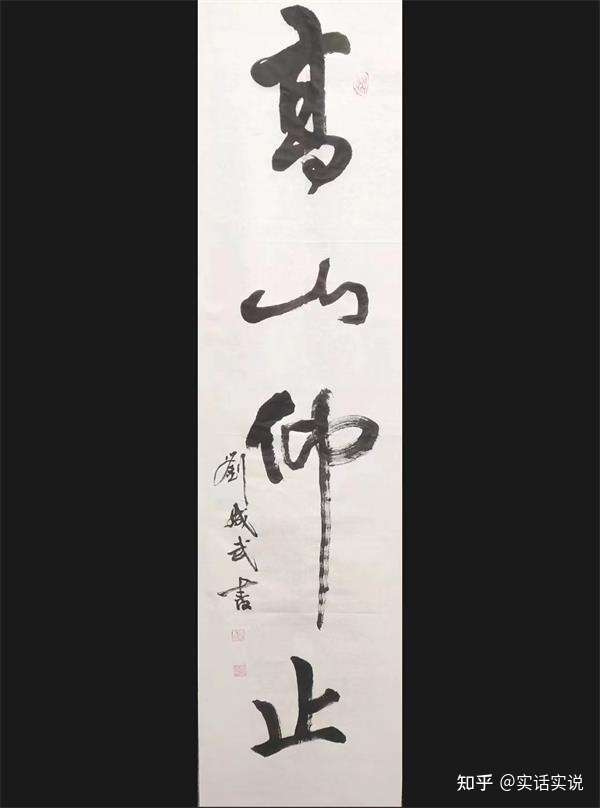 高山仰止
劉成武書
知乎 @实话实说